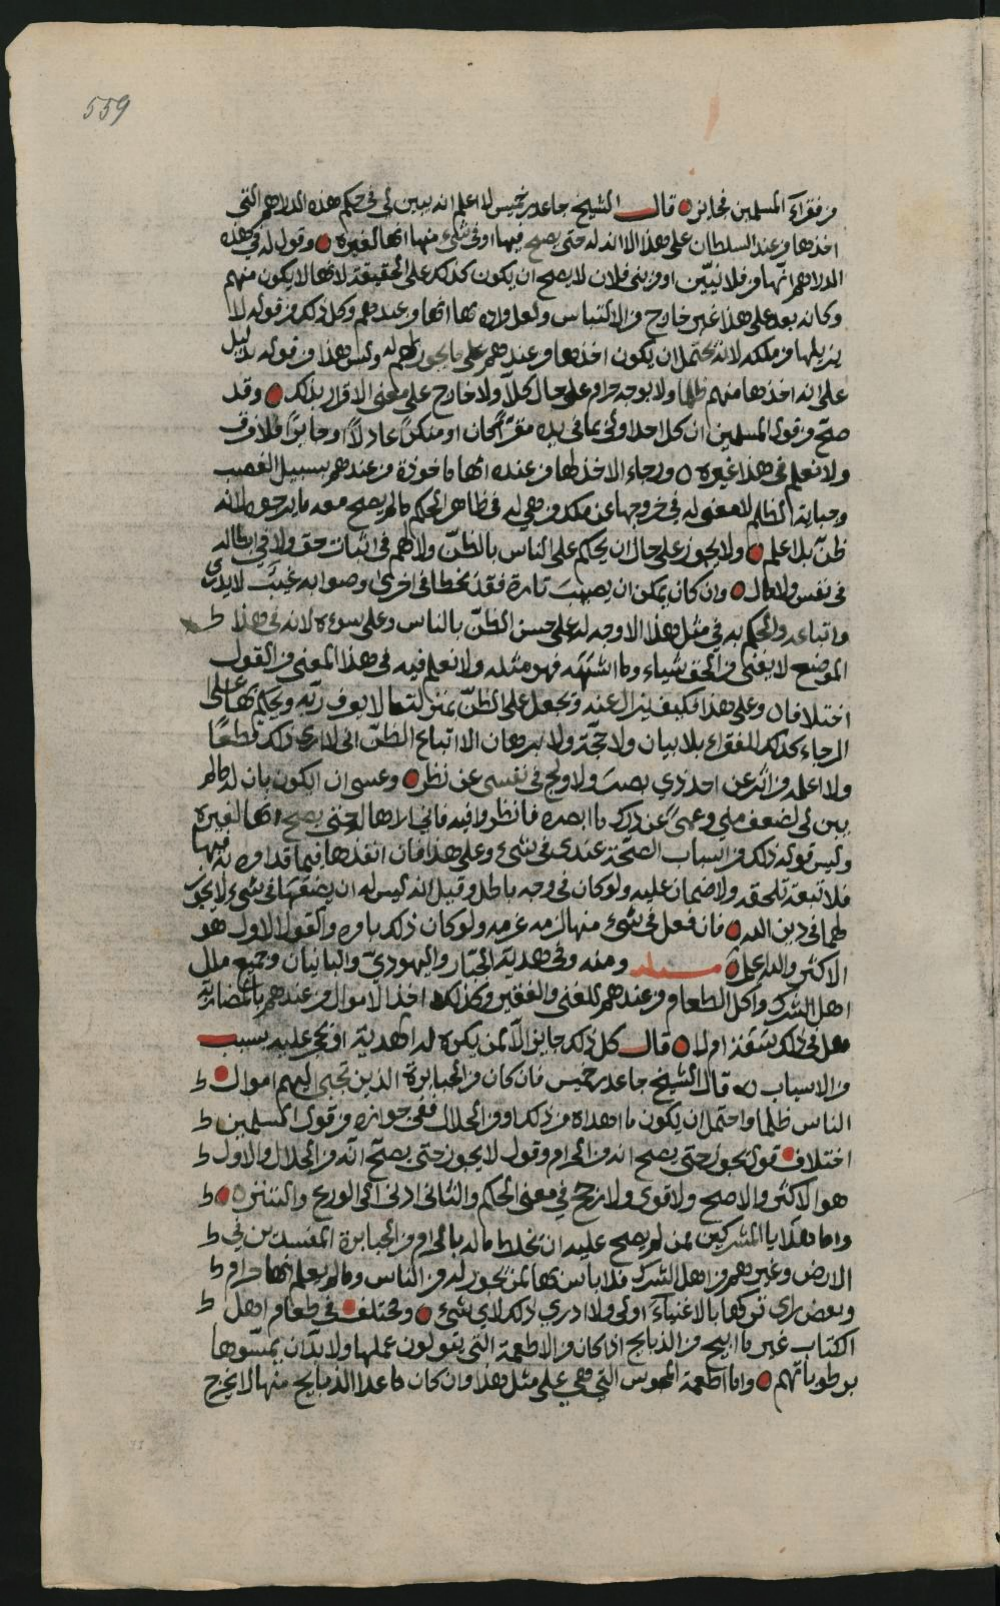 559
من فقراء المسلمين فجايز قال الشيخ جاعد بن خميس لا اعلم انه يبين لي في حكم هذه الدراهم التي
اخذها من عند السلطان على هذا الا انه له حتى يصح فيها او في شيء منها انها لغيره وقوله في هذه
الدراهم انها من فلا نبيّن او من بني فلان لا يصح ان يكون كذلك على الحقيقة لانها لا يكون منهم
وكانه بعد على هذا غير خارج من الالتباس ولعل مراده بها انها من عندهم وكل ذلك من قوله لا
يزيلها من ملكه لانه يحتمل ان يكون اخذها من عندهم على ما يجوز لهم له وليس هذا من قوله بدليل
على انه اخذها منهم ظلما ولا بوجه حرام على حال كلا ولا خارج على معنى الاقرار بذلك وقد
صح من قول المسلمين ان كل احد اولى بما في يده مقرّا كان او منكرا عادلا او جايرا فلا فرق
ولا نعلم في هذا غيره ورجاء الاخذ لها من عنده انها ماخوذة من عندهم بسبيل الغصب
وجباية الظلم لا معنى له في خروجها عن ملك من هي له في ظاهر الحكم ما لم يصح معه ما يرجوه لانه
ظنّ بلا علم ولا يجوز على حال ان يحكم على الناس بالظنّ ولا لهم في اثبات حق ولا في ابطاله
في نفس ولا مال وان كان يمكن ان يصيب تارة فقد يخطا في اخرى وصوابه غيب لا يدرى
واتباعه والحكم به في مثل هذا لا وجه له على حسن الظنّ بالناس وعلى سوءه لانه في هذا
الموضع لا يغني من الحق شياء وما اشبهه فهو مثله ولا نعلم فيه في هذا المعنى من القول
اختلافا وعلى هذا فكيف يزال عنه ويجعل على الظنّ بمنزلة ما لا يعرف ربّه ويحكم بها على
الرجاء كذلك للفقراء بلا بيان ولا حجّة ولا برهان الا اتباع الظنّ اني لا ارى ذلك قطعًا
ولا اعلمه من اثر عن احد ذي بصر ولا ولج في نفسي عن نظر وعسى ان يكون بان له ما لم
يبن لي لضعف مني وعمىً عن درك ما ابصره فانظروا فيه فاني لا اراها له حتى يصح انها لغيره
وليس قوله ذلك من اسباب الصحّة عندي في شيء وعلى هذا فان انفذها فيما قد امره به فيها
فلا تبعة تلحقه ولا ضمان عليه ولو كان في وجه باطل وقيل انه ليس له ان يضعها في شيء لا يجوز
لهما في دين الله فان فعل في شيء منها لزمه غرمه ولو كان ذلك بامره والقول الاول هو
الاكثر والله اعلم مسئلة ومنه وفي هدية الجبّار واليهوديّ والبانيان وجميع ملل
اهل الشرك واكل الطعام من عندهم للغني والفقير وكذلك اخذ الاموال من عندهم بالمضاربة
هل في ذلك شفة ام لا قال كل ذلك جايز الا لمن يكره له الهدية او تحرم عليه بسبب
من الاسباب قال الشيخ جاعد بن خميس فان كان من الجبابرة الذين تجبى اليهم اموال
الناس ظلما واحتمل ان يكون ما اهداه من ذلك او من الحلال ففي جوازه من قول المسلمين
اختلاف قول يجوز حتى يصح انه من الحرام وقول لا يجوز حتى يصحّ انّه من الحلال والاول
هو الاكثر والاصح ولا قوى ولا ارجح في معنى الحكم والثاني ادنى الى الورع والتنزه
واما هدايا المشركين لمن لم يصح عليه ان يخلط ماله بالحرام من الجبابرة المفسدين في
الارض وغيرهم من اهل الشرك فلا باس بها لمن تجوز له من الناس وما لم يعلم انها حرام
وبعض راى تركها بالاغنياء اولى ولا ادري ذلك لاي شيء ومختلف في طعام اهل
الكتاب غير ما ابيح من الذبايح اذا كان من الاطعمة التي يتولون عملها ولا بدّ ان يمسّوها
برطوباتهم واما اطعمة المجوس التي هي على مثل هذا وان كان ما عدا الذبايح منها لا يخرج